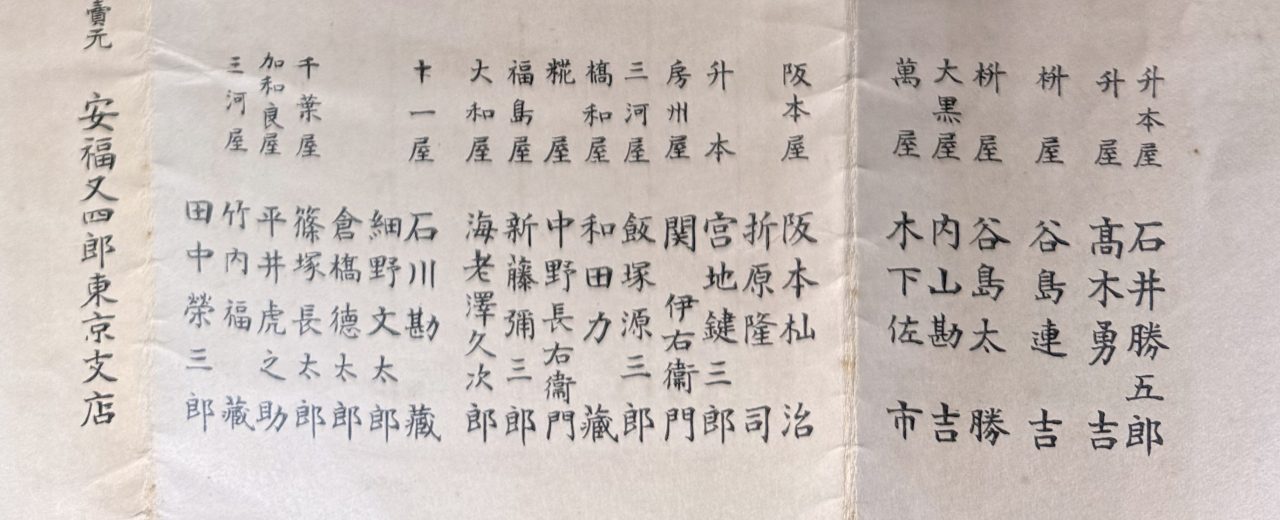 升本屋 石井勝五郎
升屋 髙木勇吉
枡屋 谷島連吉
枡屋 谷島太勝
大黒屋 内山勘吉
萬屋 木下佐市
阪本屋 阪本杣治
折原隆司
升本 宮地鍵三郎
房州屋 関伊右衞門
三河屋 飯塚源三郎
橋和屋 和田力藏
糀屋 中野長右衞門
福島屋 新藤彌三郎
大和屋 海老澤久次郎
十一屋 石川勘藏
細野文太郎
倉橋德太郎
千葉屋 篠塚長太郎
加和良屋 平井虎之助
三河屋 竹内福藏
田中榮三郎
賣元 安福又四郎東京支店